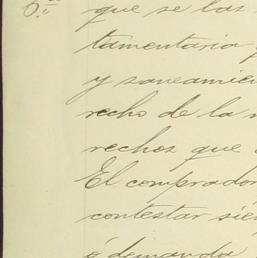 6.ª que se las
tamentaria
y saneamie
recho de la
rechos que
El comprador
contestar sie
ó demanda